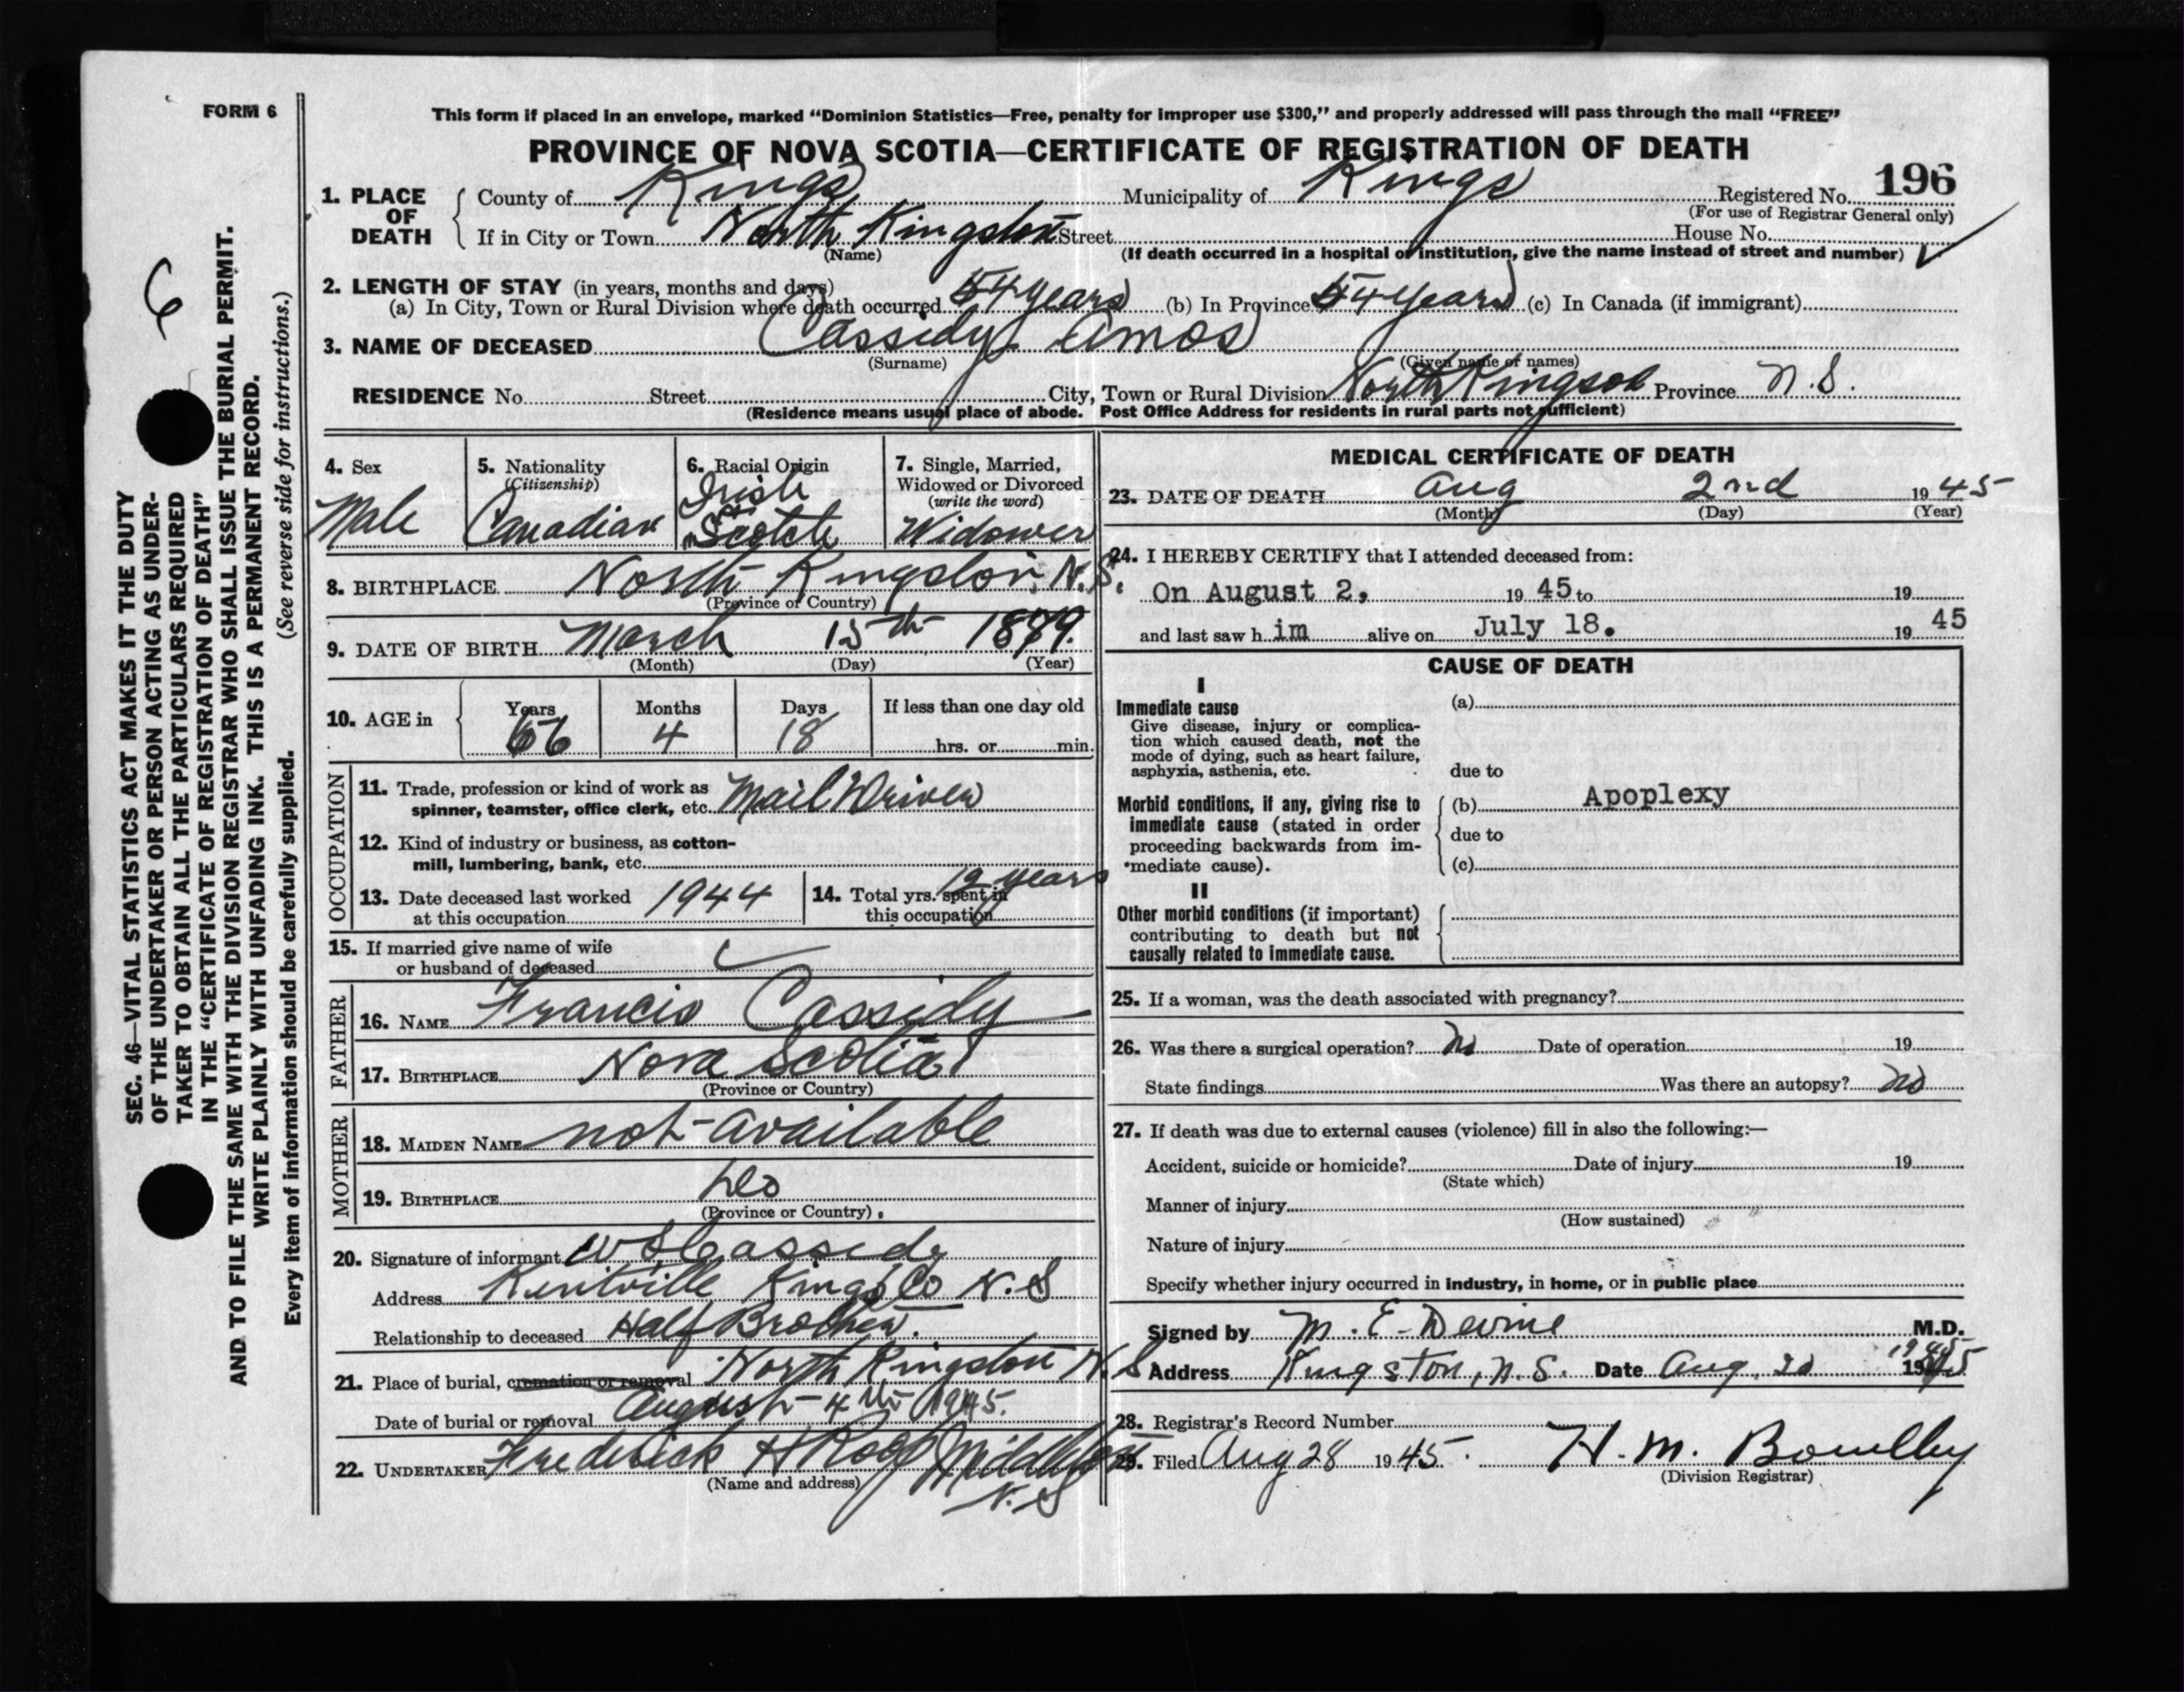 FORM 6
This form if placed in an envelope, marked "Dominion Statistics—Free, penalty for improper use $300," and properly addressed will pass through the mail "FREE"
PROVINCE OF NOVA SCOTIA—CERTIFICATE OF REGISTRATION OF DEATH
196
1. PLACE OF DEATH County of Kings Municipality of Kings Registered No.
(For use of Registrar General only)
If in City or Town North Kingston Street House No.
(Name) (If death occurred in a hospital or institution, give the name instead of street and number)
2. LENGTH OF STAY (in years, months and days)
(a) In City, Town or Rural Division where death occurred 54 years (b) In Province 54 years (c) In Canada (if immigrant)
3. NAME OF DECEASED Cassidy Amos
(Surname) (Given name or names)
RESIDENCE No. Street City, Town or Rural Division North Kingson Province N.S.
(Residence means usual place of abode. Post Office Address for residents in rural parts not sufficient)
4. Sex
Male
5. Nationality
(Citizenship)
Canadian
6. Racial Origin
Irish
Scotch
7. Single, Married,
Widowed or Divorced
(write the word)
Widower
8. BIRTHPLACE North Kingston, N.S.
(Province or Country)
9. DATE OF BIRTH March 15th 1879.
(Month) (Day) (Year)
10. AGE in Years Months Days If less than one day old
66 4 18 hrs. or min.
OCCUPATION
11. Trade, profession or kind of work as
spinner, teamster, office clerk, etc. Mail Driver
12. Kind of industry or business, as cotton-
mill, lumbering, bank, etc.
13. Date deceased last worked
at this occupation 1944
14. Total yrs. spent in
this occupation 12 years
15. If married give name of wife
or husband of deceased
FATHER
16. NAME Francis Cassidy
17. BIRTHPLACE Nova Scotia
(Province or Country)
MOTHER
18. MAIDEN NAME not available
19. BIRTHPLACE do
(Province or Country)
20. Signature of informant W S Cassidy
Address Kentville Kings Co N.S
Relationship to deceased Half Brother.
21. Place of burial, cremation or removal North Kingston N.S
Date of burial or removal August 4th 1945.
22. UNDERTAKER Frederick H Roop Middleton
(Name and address) N.S
MEDICAL CERTIFICATE OF DEATH
23. DATE OF DEATH Aug 2nd 1945
(Month) (Day) (Year)
24. I HEREBY CERTIFY that I attended deceased from:
On August 2, 19 45 to 19
and last saw h im alive on July 18. 19 45
CAUSE OF DEATH
I
Immediate cause
Give disease, injury or complica-
tion which caused death, not the
mode of dying, such as heart failure,
asphyxia, asthenia, etc.
(a)
due to
Morbid conditions, if any, giving rise to
immediate cause (stated in order
proceeding backwards from im-
mediate cause).
(b) Apoplexy
due to
(c)
II
Other morbid conditions (if important)
contributing to death but not
causally related to immediate cause.
25. If a woman, was the death associated with pregnancy?
26. Was there a surgical operation? No Date of operation 19
State findings Was there an autopsy? No
27. If death was due to external causes (violence) fill in also the following:—
Accident, suicide or homicide? Date of injury 19
(State which)
Manner of injury
(How sustained)
Nature of injury
Specify whether injury occurred in industry, in home, or in public place
Signed by M. E. Devine M.D.
Address Kingston, N.S. Date Aug. 20 1945
28. Registrar's Record Number
29. Filed Aug 28 1945. H. M.
(Division Registrar)
6
SEC. 46—VITAL STATISTICS ACT MAKES IT THE DUTY
OF THE UNDERTAKER OR PERSON ACTING AS UNDER-
TAKER TO OBTAIN ALL THE PARTICULARS REQUIRED
IN THE "CERTIFICATE OF REGISTRATION OF DEATH"
AND TO FILE THE SAME WITH THE DIVISION REGISTRAR WHO SHALL ISSUE THE BURIAL PERMIT.
WRITE PLAINLY WITH UNFADING INK. THIS IS A PERMANENT RECORD.
Every item of information should be carefully supplied. (See reverse side for instructions.)